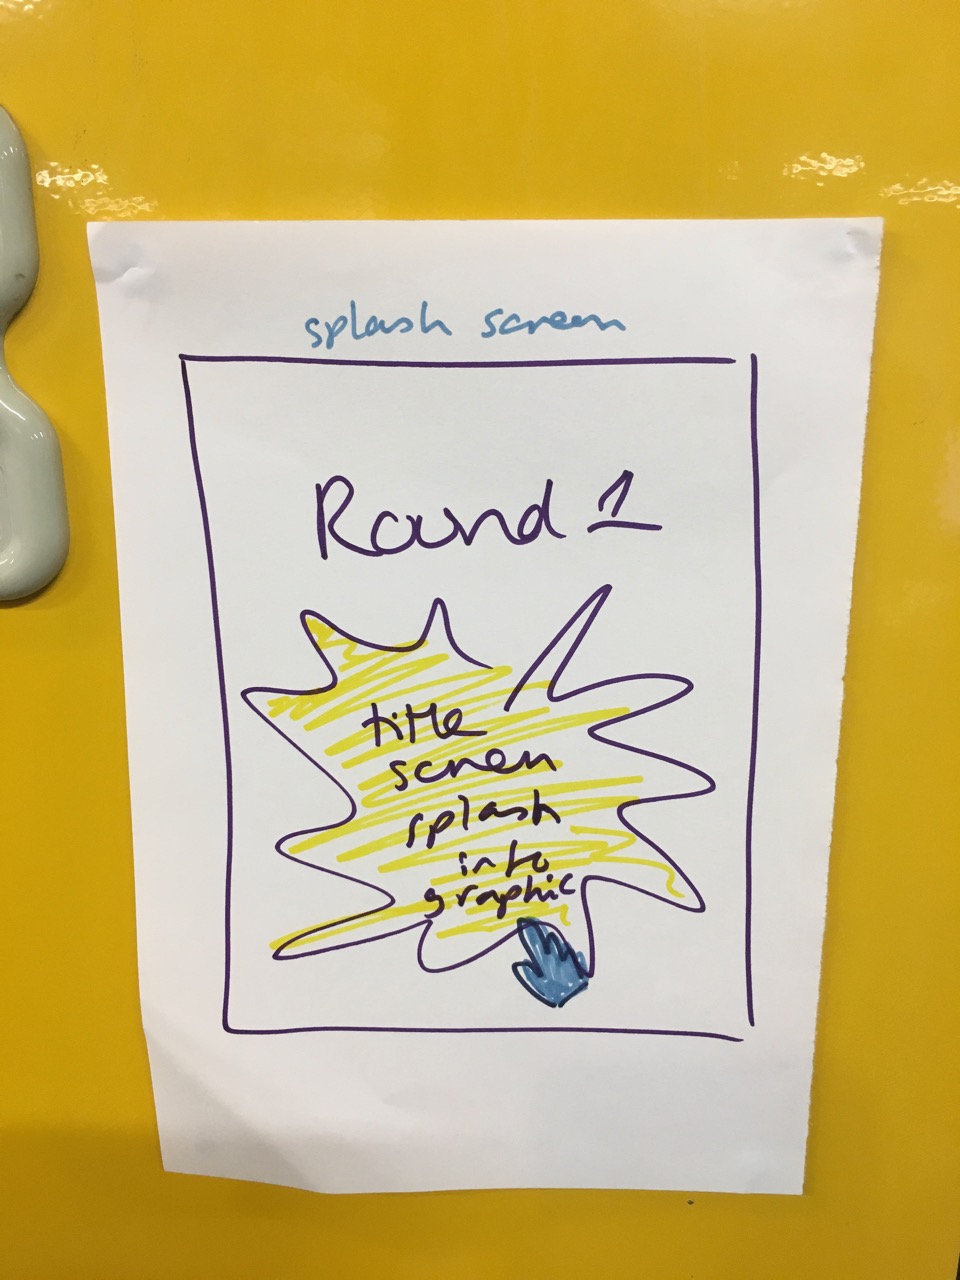 splash screen
Round 1
title
screen
splash
into
graphic